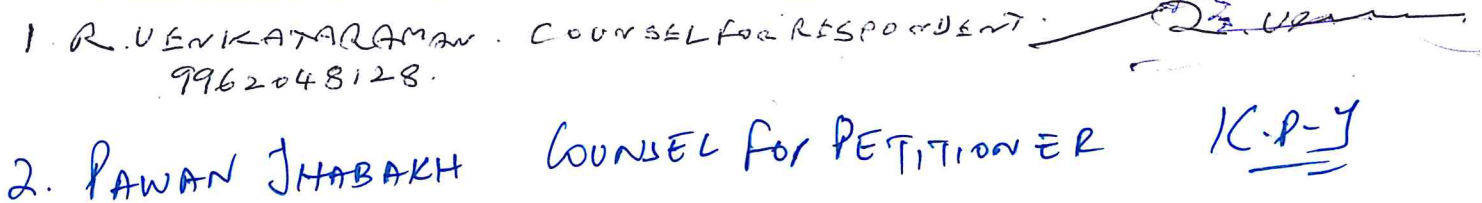 1 R. VENKATARAMAN. COUNSEL FOR RESPONDENT.
9962048128.
2. PAWAN JHABAKH COUNSEL for PETITIONER K.P-J